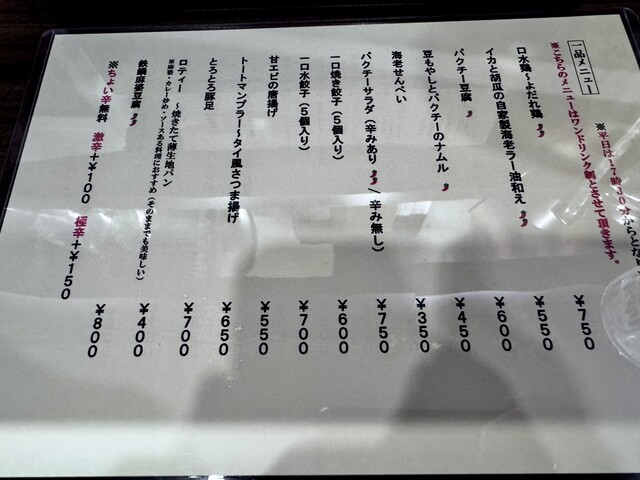 ※平日は17時30分からとな
※こちらのメニューはワンドリンク制とさせて頂きます。
一品メニュー
口水鶏～よだれ鶏 ￥750
イカと胡瓜の自家製海老ラー油和え ￥550
パクチー豆腐 ￥600
豆もやしとパクチーのナムル ￥450
海老せんべい ￥350
パクチーサラダ（辛みあり / 辛み無し） ￥750
一口焼き餃子（5個入り） ￥600
一口水餃子（5個入り） ￥700
甘エビの唐揚げ ￥550
トートマンプラー～タイ風さつま揚げ ￥650
とろとろ豚足 ￥700
ロティー ～焼きたて薄生地パン ￥400
麻婆・カレー炒め・ソースある料理におすすめ（そのままでも美味しい）
鉄鍋麻婆豆腐 ￥800
※ちょい辛無料 激辛+￥100 極辛+￥150